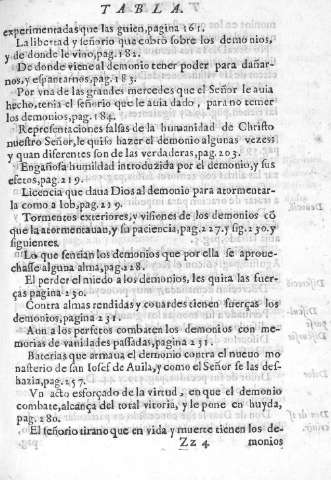 TABLA.
experimentadas que las guien,pagina 161.
La libertad y señorio que cobrò sobre los demonios,
y de donde le vino,pag.182.
De donde viene al demonio tener poder para dañar-
nos,y espantarnos,pag.183.
Por vna de las grandes mercedes que el Señor le auia
hecho,tenia el señorio que le auia dado, para no temer
los demonios,pag.184.
Representaciones falsas de la humanidad de Christo
nuestro Señor,le quiso hazer el demonio algunas vezes
y quan diferentes son de las verdaderas,pag.203.
Engañosa humildad introduzida por el demonio,y sus
efetos,pag.219.
Licencia que daua Dios al demonio para atormentar-
la como a Iob,pag.219.
Tormentos exteriores,y visiones de los demonios cõ
que la atormentauan,y su paciencia,pag.227.y sig.230.y
siguientes.
Lo que sentian los demonios que por ella se aproue-
chasse alguna alma,pag.228.
El perder el miedo a los demonios, les quita las fuer-
ças pagina 230.
Contra almas rendidas y couardes tienen fuerças los
demonios,pagina 231.
Aun a los perfetos combaten los demonios con me-
morias de vanidades passadas,pagina 231.
Baterias que armaua el demonio contra el nueuo mo
nasterio de san Iosef de Auila,y como el Señor se las des-
hazia,pag.257.
Vn acto esforçado de la virtud, en que el demonio
combate,alcança del total vitoria, y le pone en huyda,
pag.280.
El señorio tirano que en vida y muerte tienen los de-
Zz 4 monios